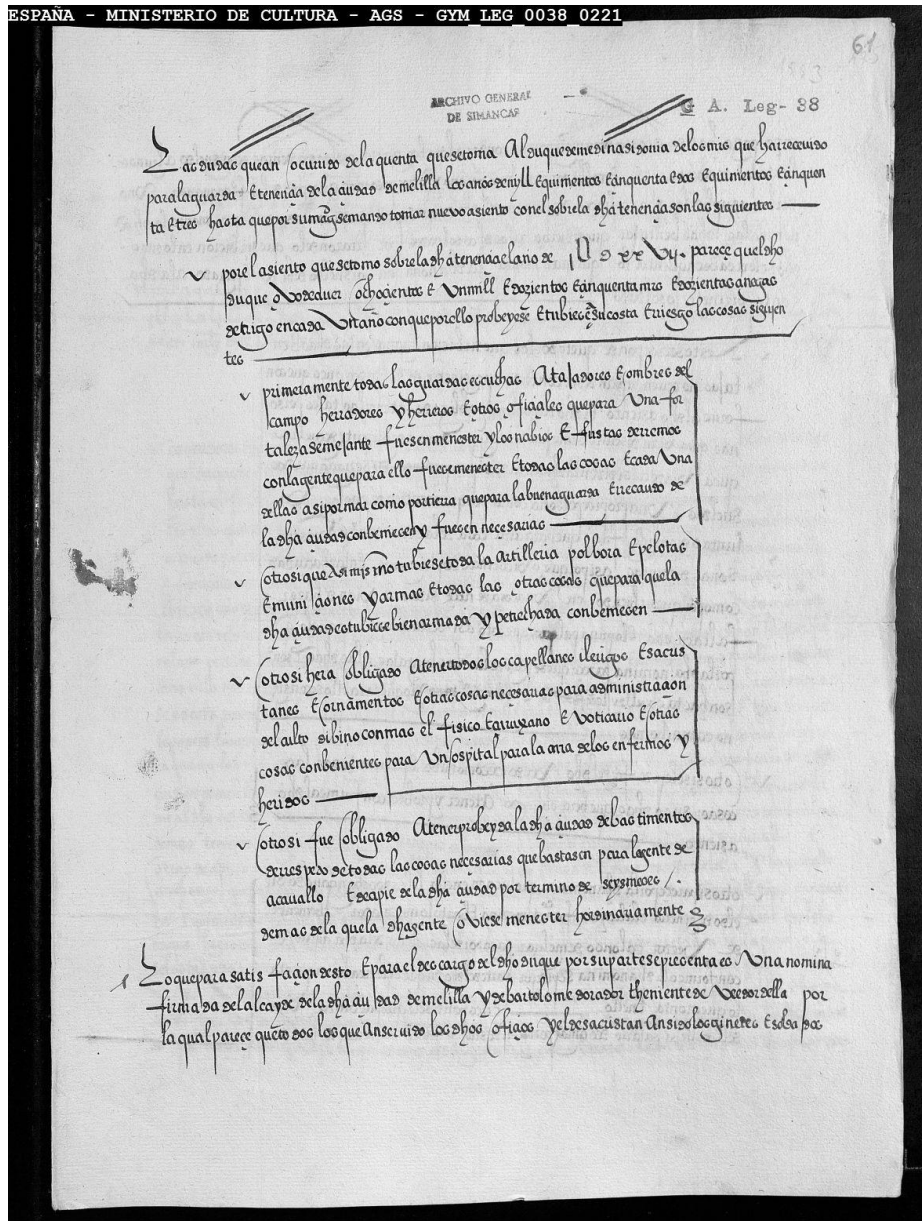 ESPAÑA - MINISTERIO DE CULTURA - AGS - GYM_LEG_0038_0221
61
1553
ARCHIVO GENERAL
DE SIMANCAS
G A. Leg- 38
Las dudas que an ocurrido de la quenta que se toma Al duque de medinasidonia de los mrs que ha rrecevido
para la guarda E tenençia de la çiudad de melilla los años de myll E quinientos E çinquenta E dos E quinientos E çinquen
ta E tres hasta que por su mag se mando tomar nuevo asiento con el sobre la dha tenençia son las siguientes
por el asiento que se tomo sobre la dha tenençia el año de parece quel dho
duque ovo de aver ochoçientos E Un mill E dozientos E çinquenta mrs E dozientas anegas
de trigo en cada Un año con que por ello probeyese E tubiese a su costa E riesgo las cosas siguyen
tes
primeramente todas las guardas escuchas Atajadores E ombres del
campo herradores y herreros E otros ofiçiales que para Una for
taleza semejante fuesen menester y los nabios E fustas de rremos
con la gente que para ello fuese menester E todas las cosas E cada Una
dellas asi por mar como por tierra que para la buena guarda E rrecaudo de
la dha çiudad conbiniesen y fuesen neçesarias
otrosi que Asi mismo tubiese toda la Artilleria polbora E pelotas
E muniçiones y armas E todas las otras cosas que para que la
dha çiudad estubiese bien armada y petrechada conbiniesen
otrosi hera obligado A tener todos los capellanes clerigos E sacris
tanes E ornamentos E otras cosas neçesarias para administraçion
del culto dibino con mas el fisico E çirujano E voticario E otras
cosas conbenientes para Un ospital para la cura de los enfermos y
heridos
otrosi fue obligado A tener probeyda la dha çiudad de bastimentos
de rrespecto de todas las cosas neçesarias que bastasen para la gente de
a cavallo E de a pie de la dha çiudad por termino de seys meses
demas de la que la dha gente oviese menester hordinariamente
Lo que para satisfaçion desto E para el descargo del dho duque por su parte se presenta es Una nomina
firmada del alcayde de la dha çiudad de melilla y de bartolome dorador theniente de veedor della por
la qual pareçe que todos los que An servido los dhos ofiçios y el de sacristan An sido los ginetes E soldados